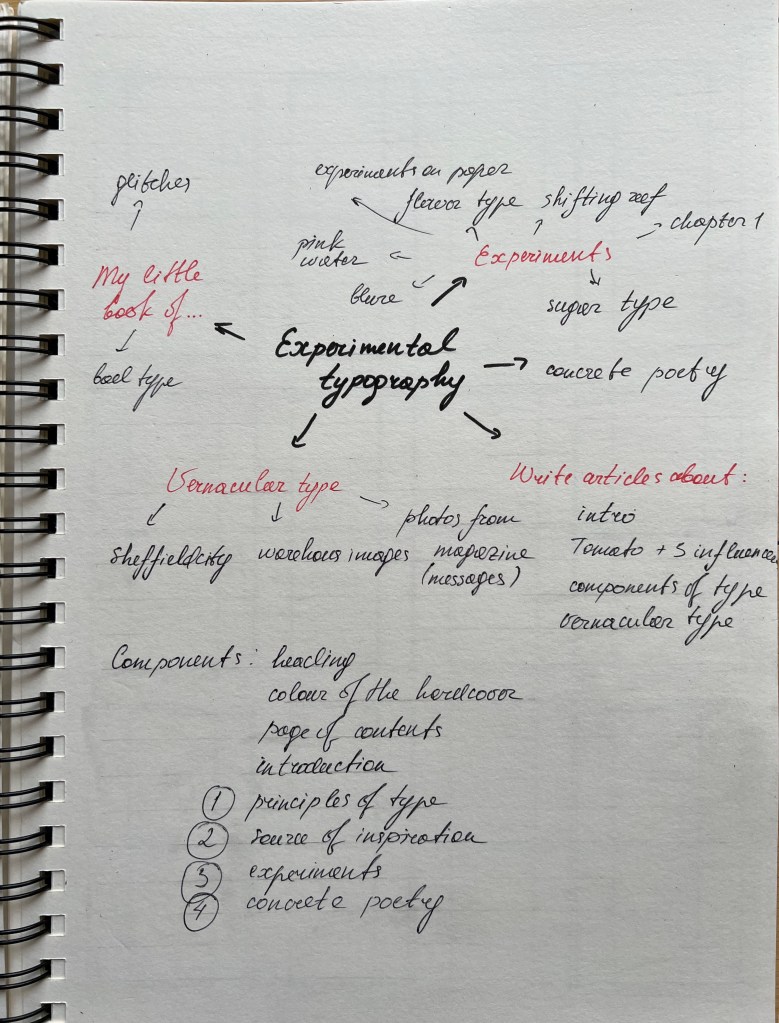 glitches
experiments on paper
flower type
shifting reef
chapter 1
pink
water
Experiments
My little
book of...
blure
sugar type
Experimental
typography
concrete poetry
type
Vernacular type
Write articles about:
photos from
magazine
(messages)
sheffieldcity
warehous images
intro
Tomato + 3
components of type
vernacular type
Components: heading
colour of the hardcover
page of contents
introduction
1 principles of type
2 source of inspiration
3 experiments
4 concrete poetry